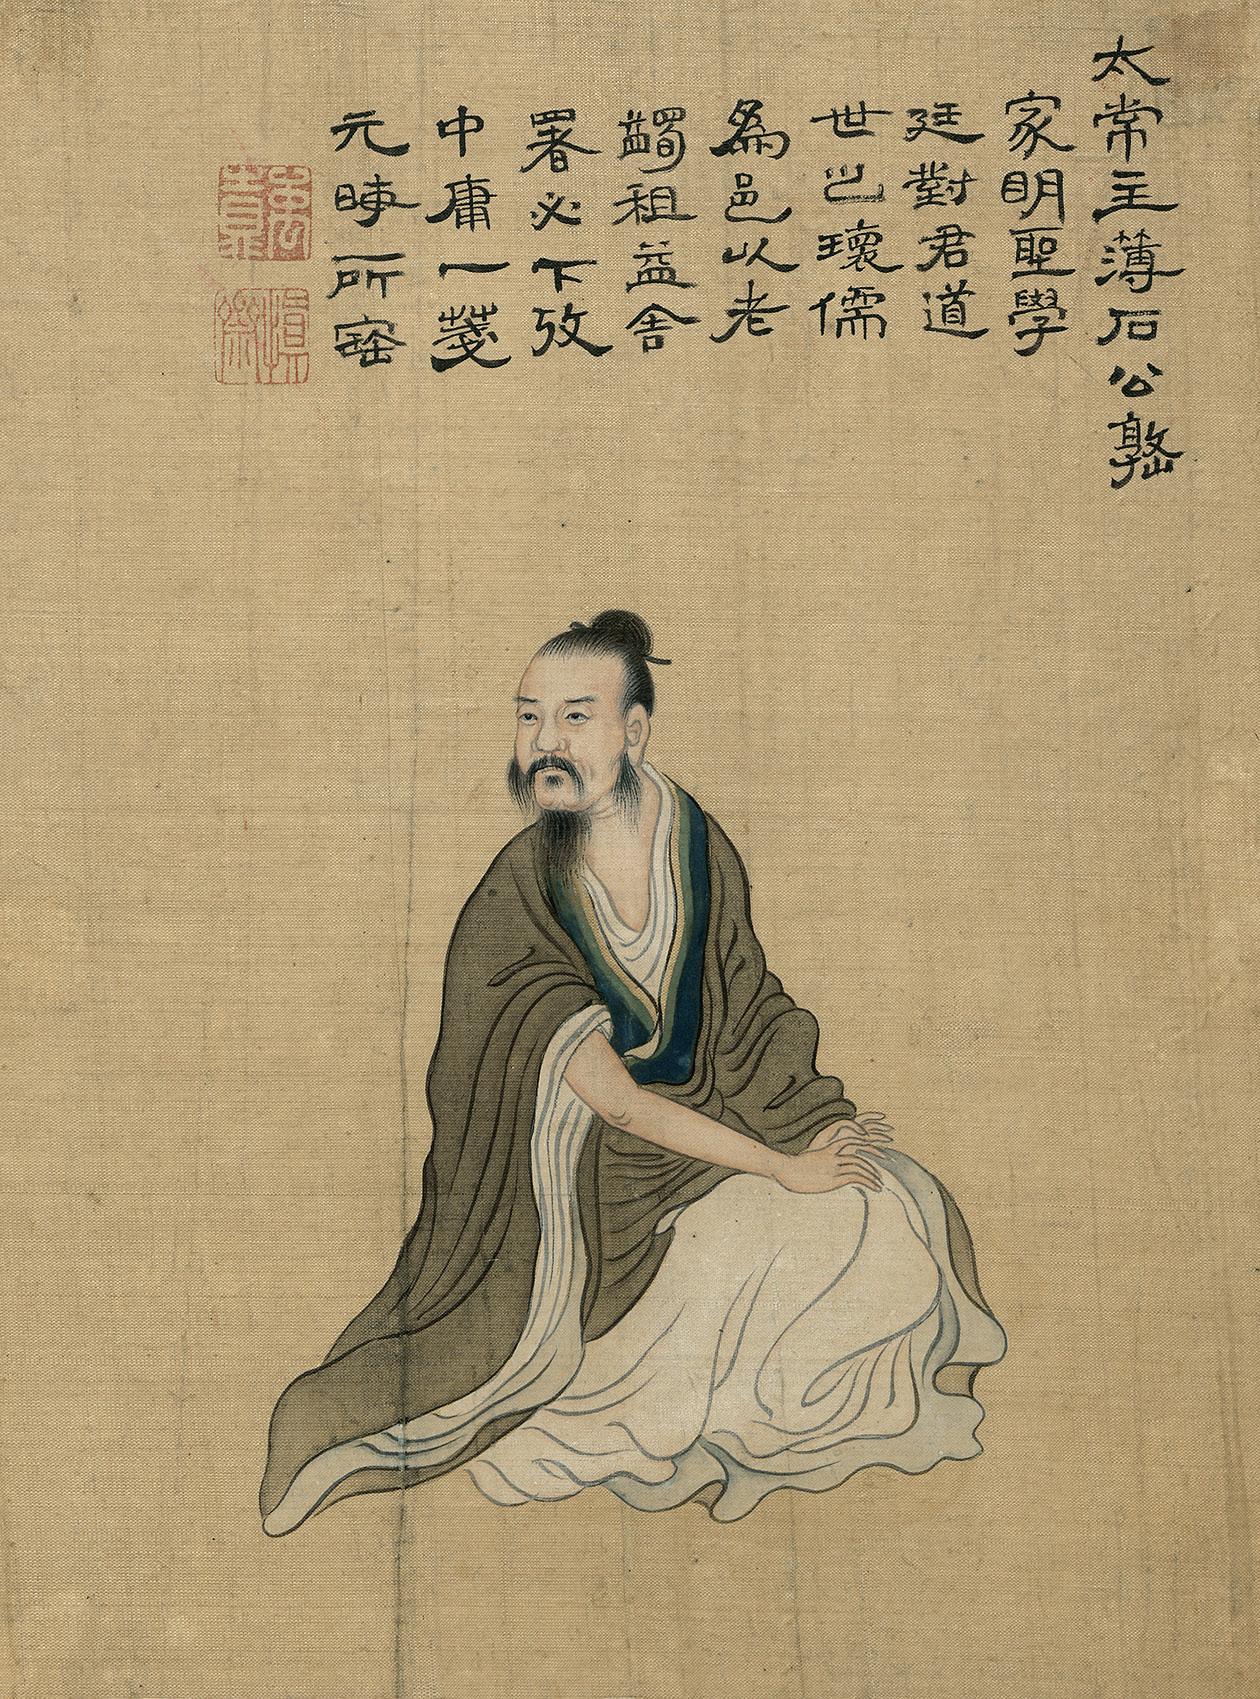 太常主薄石公𡼖
家明聖學
廷對君道
世㠯瓌儒
爲邑以老
蠲租益舍
署必下攷
中庸一箋
元晦所寶